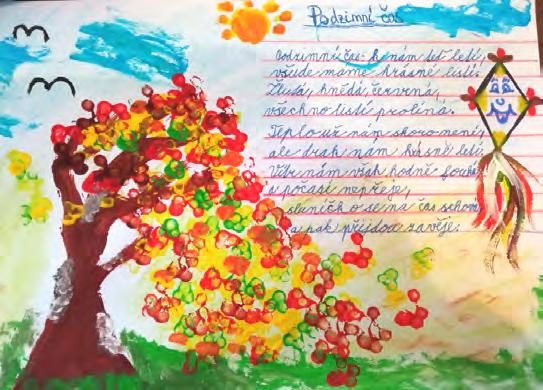 Podzimní čas
Podzimní čas k nám teď letí,
všude máme krásné listí.
Žlutá, hnědá, červená,
všechno listí prolíná.
Teplo už nám skoro není,
ale drak nám krásně letí.
Vítr nám však hodně fouká,
a počasí nepřeje,
sluníčko se na čas schová,
a pak přijdou závěje.